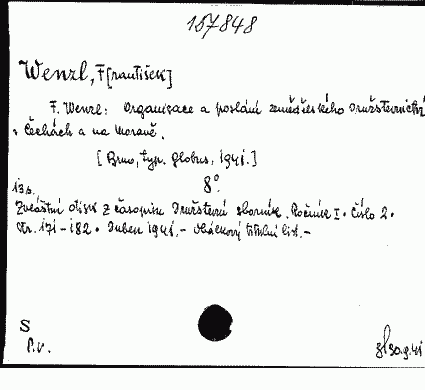 157848
Wenzl, F[rantišek]
F. Wenzl: Organisace a poslání zemědělského družstevnictví
v Čechách a na Moravě.
[Brno, typ. Globus, 1941.]
8°.
13 s.
Zvláštní otisk z časopisu Družstevní sborník. Ročník I. Číslo 2.
Str. 171-182. Duben 1941.- Obálkový titulní list.-
S
P.V.
30.9.41